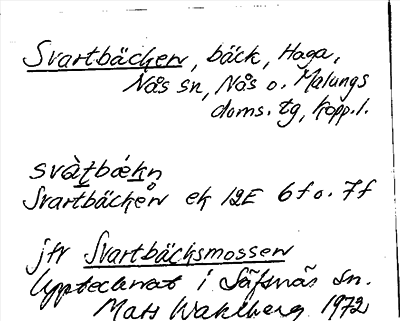 Svartbäcken, bäck, Haga,
Nås sn, Nås o. Malungs
doms. tg, Kopp. l.
svàt̠bǽkn̥
Svartbäcken ek 12E 6f o. 7f
jfr Svartbäcksmossen
Upptecknat i Säfsnäs sn.
Mats Wahlberg 1972